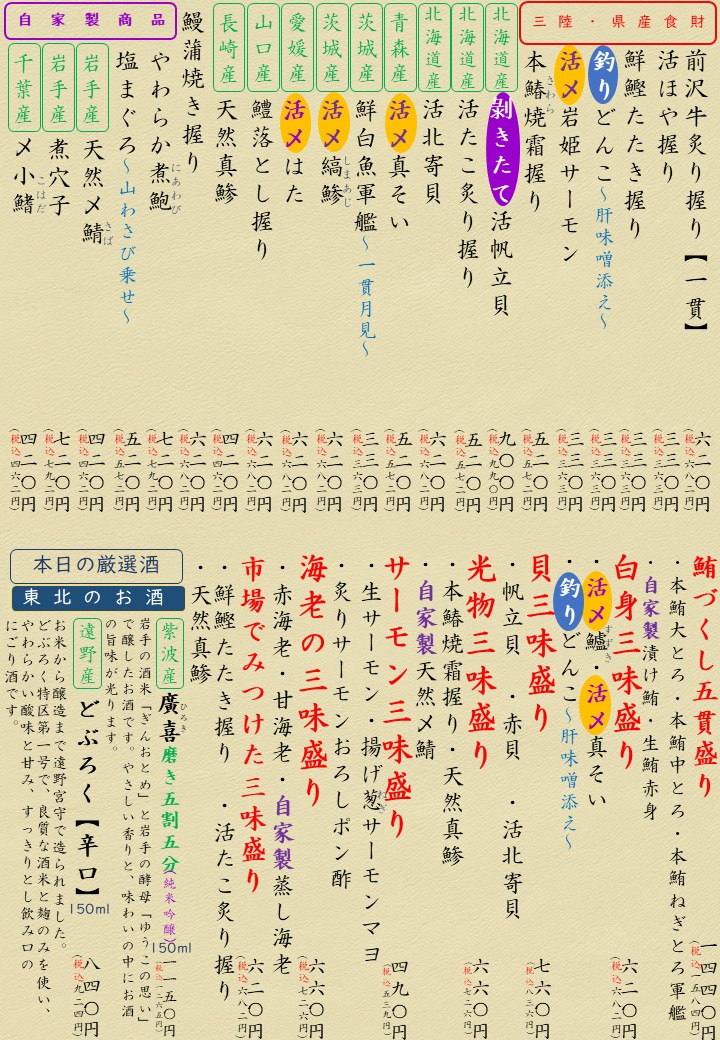 三陸・県産食財
前沢牛炙り握り【一貫】 六二〇円
(税込六八二円)
活ほや握り 三三〇円
(税込三六三円)
鮮鰹たたき握り 三三〇円
(税込三六三円)
釣りどんこ〜肝味噌添え〜 三三〇円
(税込三六三円)
活〆岩姫サーモン 三三〇円
(税込三六三円)
さわら
本鰆焼霜握り 五二〇円
(税込五七二円)
北海道産 剥きたて活帆立貝 九〇〇円
(税込九九〇円)
北海道産 活たこ炙り握り 五二〇円
(税込五七二円)
北海道産 活北寄貝 六二〇円
(税込六八二円)
青森産 活〆真そい 五二〇円
(税込五七二円)
茨城産 鮮白魚軍艦〜一貫月見〜 三三〇円
(税込三六三円)
しまあじ
茨城産 活〆縞鯵 六二〇円
(税込六八二円)
愛媛産 活〆はた 六二〇円
(税込六八二円)
山口産 鱧落とし握り 六二〇円
(税込六八二円)
長崎産 天然真鯵 四二〇円
(税込四六二円)
鰻蒲焼き握り 六二〇円
(税込六八二円)
自家製商品
にあわび
やわらか煮鮑 七二〇円
(税込七九二円)
塩まぐろ〜山わさび乗せ〜 五二〇円
(税込五七二円)
さば
岩手産 天然〆鯖 四二〇円
(税込四六二円)
岩手産 煮穴子 七二〇円
(税込七九二円)
こはだ
千葉産 〆小鰭 四二〇円
(税込四六二円)
鮪づくし五貫盛り 一四四〇円
(税込一五八四円)
・本鮪大とろ・本鮪中とろ・本鮪ねぎとろ軍艦
・自家製漬け鮪・生鮪赤身
白身三味盛り 六二〇円
(税込六八二円)
すずき
・活〆鱸・活〆真そい
・釣りどんこ〜肝味噌添え〜
貝三味盛り 七六〇円
(税込八三六円)
・帆立貝・赤貝・活北寄貝
光物三味盛り 六六〇円
(税込七二六円)
・本鰆焼霜握り・天然真鯵
・自家製天然〆鯖
サーモン三味盛り 四九〇円
(税込五三九円)
ねぎ
・生サーモン・揚げ葱サーモンマヨ
・炙りサーモンおろしポン酢
海老の三味盛り 六六〇円
(税込七二六円)
・赤海老・甘海老・自家製蒸し海老
市場でみつけた三味盛り 六二〇円
(税込六八二円)
・鮮鰹たたき握り・活たこ炙り握り
・天然真鯵
本日の厳選酒
東北のお酒
ひろき
紫波産 廣喜磨き五割五分(純米吟醸) 150ml 一一五〇円
(税込一二六五円)
岩手の酒米「ぎんおとめ」と岩手の酵母「ゆうこの思い」
で醸したお酒です。やさしい香りと、味わいの中にお酒
の旨味が光ります。
遠野産 どぶろく【辛口】 150ml 八四〇円
(税込九二四円)
お米から醸造まで遠野宮守で造られました。
どぶろく特区第一号で、良質な酒米と麹のみを使い、
やわらかい酸味と甘み、すっきりとし飲み口の
にごり酒です。